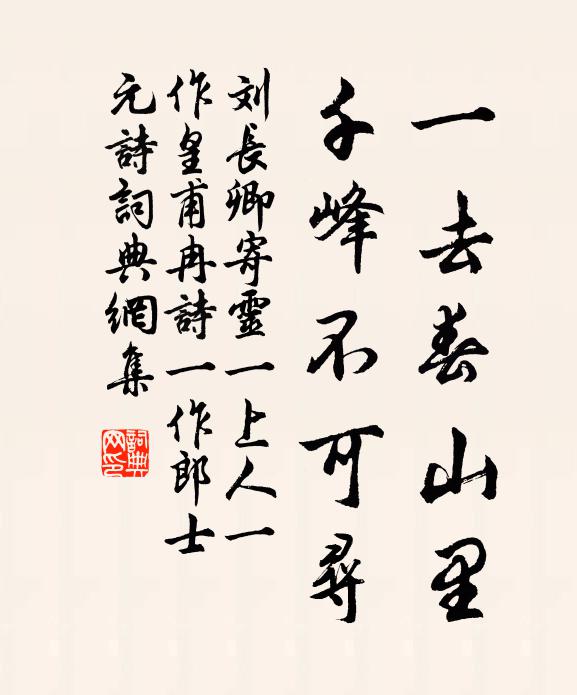 一去春山里
千峰不可尋
刘長卿寄靈一上人一
作皇甫冉詩一作郎士
元詩詞典網集
詞典
网印